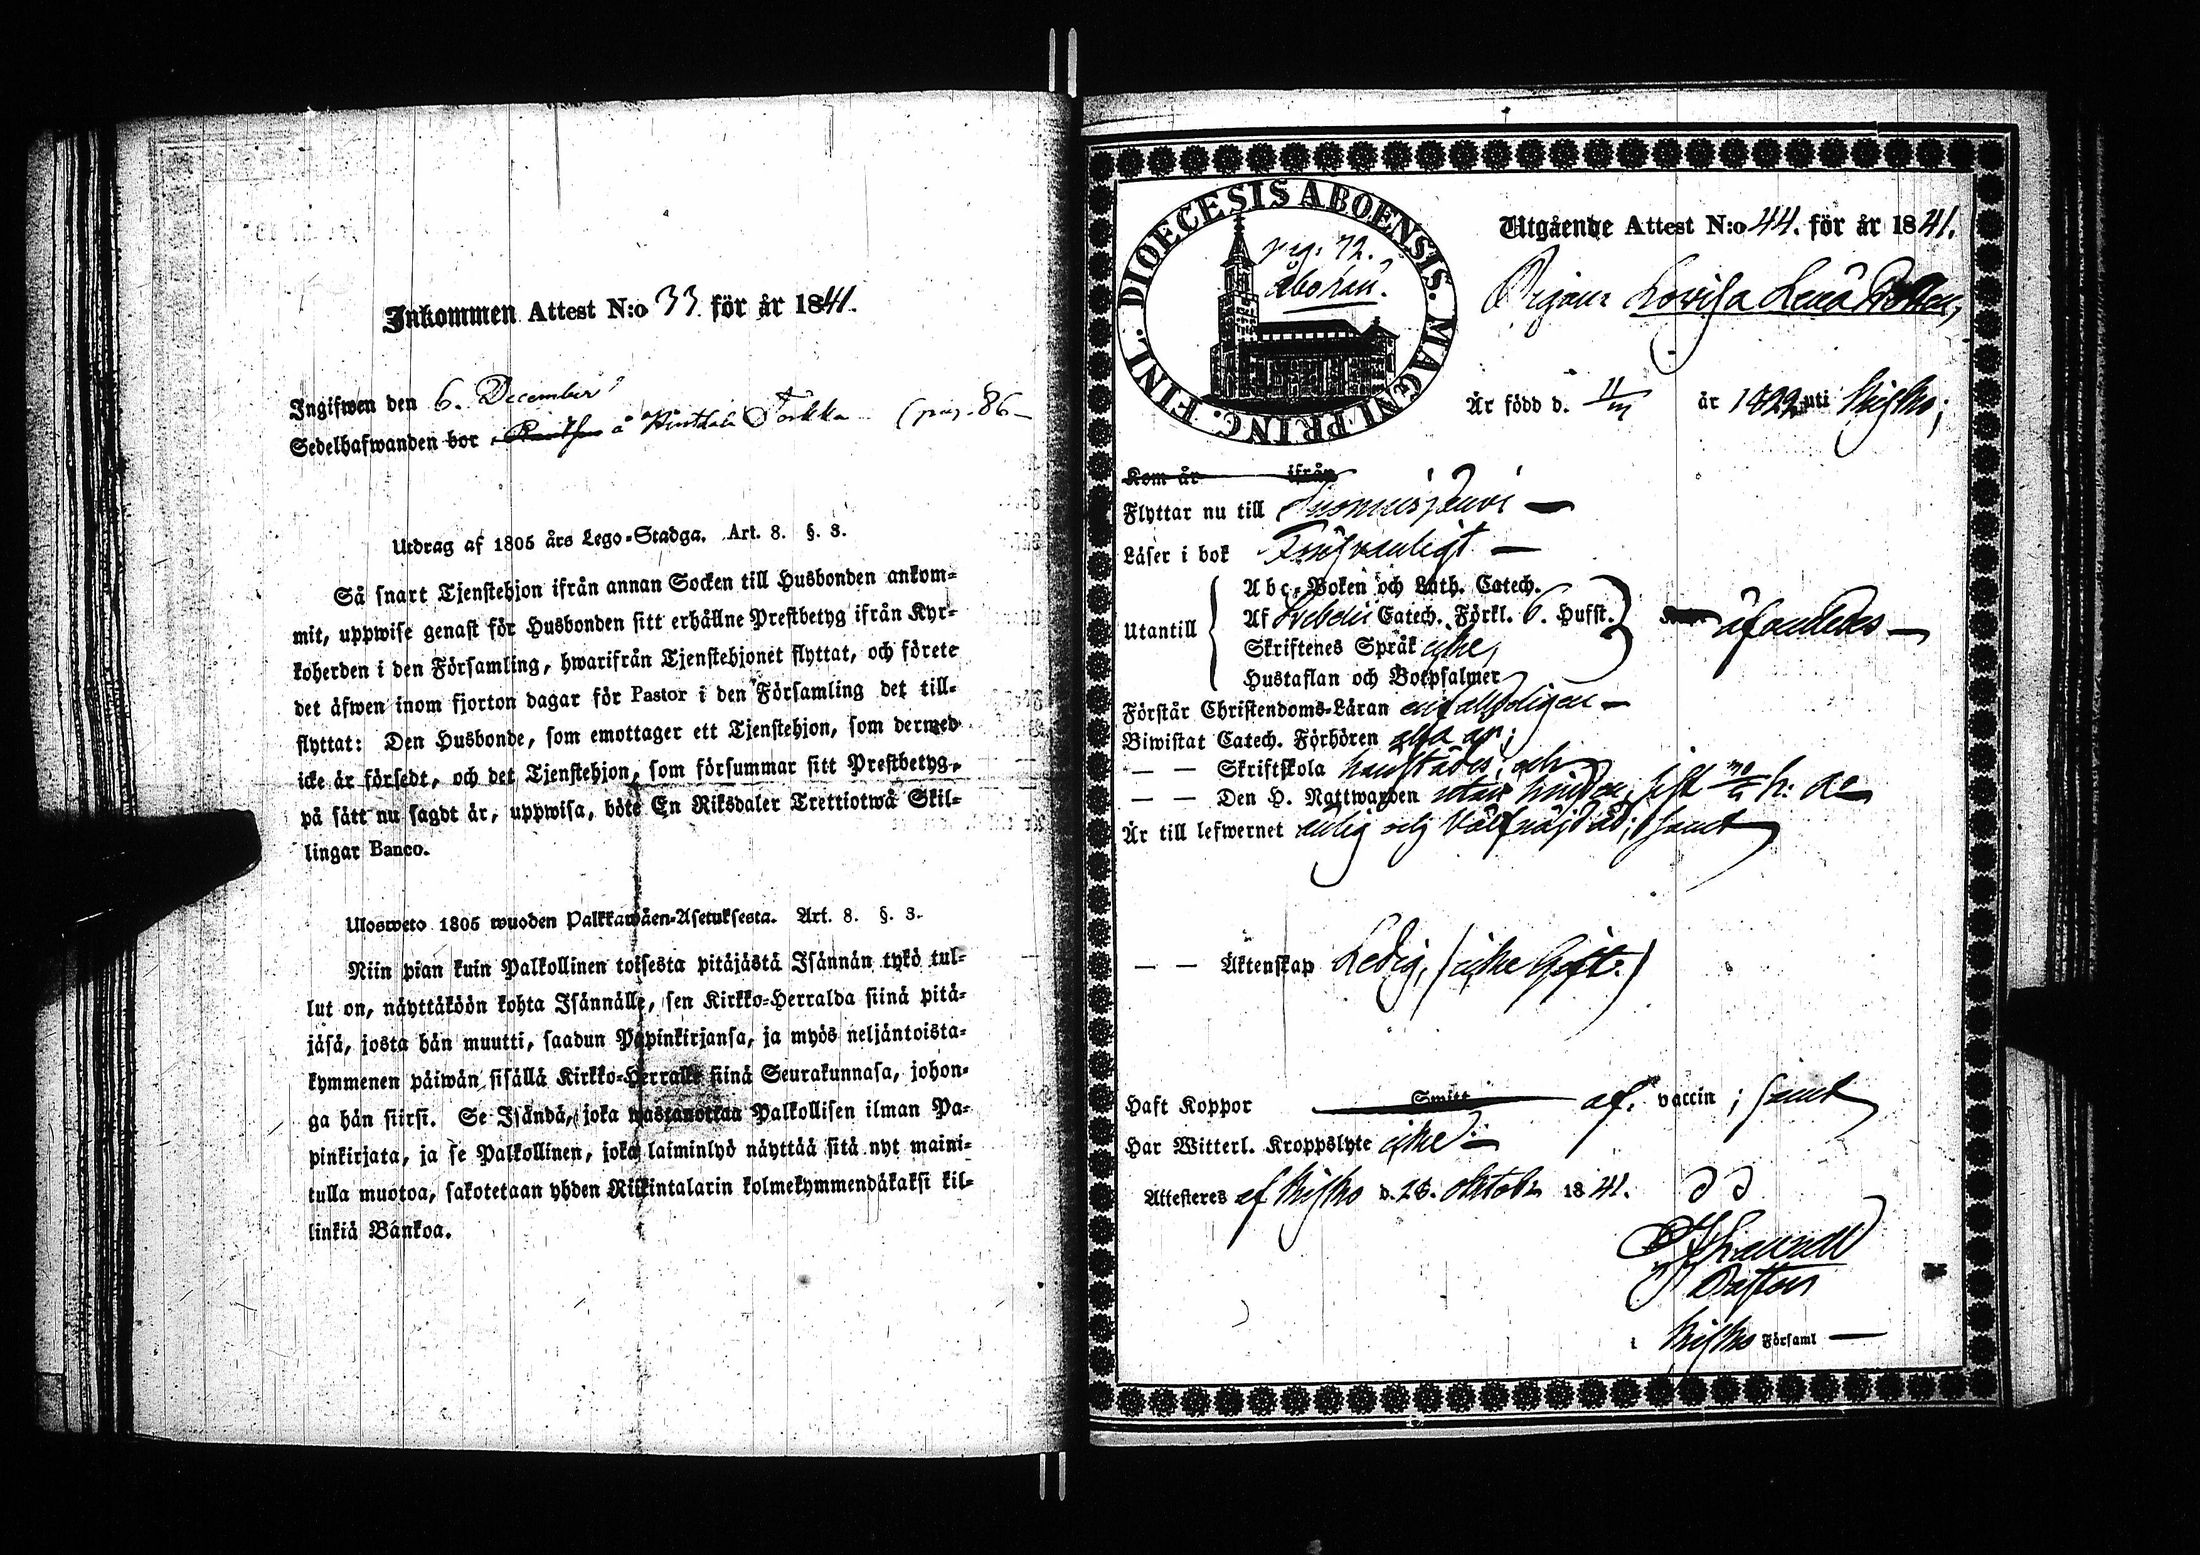 Inkommen Attest N:o 33 för år 1841.
Ingifwen den 6. December
Sedelhafwanden bor å Torkka (pag. 86
Utdrag af 1805 års Lego-Stadga. Art. 8. §. 3.
Så snart Tjenstehjon ifrån annan Socken till Husbonden ankom-
mit, uppwise genast för Husbonden sitt erhållne Prestbetyg ifrån Kyr-
koherden i den Församling, hwarifrån Tjenstehjonet flyttat, och förete
det äfwen inom fjorton dagar för Pastor i den Församling det till-
flyttat: Den Husbonde, som emottager ett Tjenstehjon, som dermed
icke är försedt, och det Tjenstehjon, som försummar sitt Prestbetyg,
på sätt nu sagdt är, uppwisa, böte En Riksdaler Trettiotwå Skil-
lingar Banco.
Ulosweto 1805 wuoden Palkkawäen-Asetuksesta. Art. 8. §. 3.
Niin pian kuin Palkollinen toisesta pitäjästä Isännän tykö tul-
lut on, näyttäköön kohta Isännälle, sen Kirkko-Herralda siinä pitä-
jäsä, josta hän muutti, saadun Papinkirjansa, ja myös neljäntoista-
kymmenen päiwän sisällä Kirkko-Herralle siinä Seurakunnasa, johon-
ga hän siirsi. Se Isändä, joka wastanottaa Palkollisen ilman Pa-
pinkirjata, ja se Palkollinen, joka laiminlyö näyttää sitä nyt maini-
tulla muotoa, sakotetaan yhden Riikintalarin kolmekymmendäkaksi kil-
linkiä Bankoa.
DIOECESIS ABOENSIS. MAGNI PRINC. FINL.
pag. 72.
Utgående Attest N:o 44. för år 1841.
Pigan Lovisa Lena
Är född d. 11/ år 1822 uti Kisko;
Kom år ifrån
Flyttar nu till Suomusjervi
Läser i bok Försvarligt
Utantill
Abc-Boken och Luth. Catech.
Af Svebelii Catech. Förkl. 6. Hufst.
Skriftenes Språk icke,
Hustaflan och Botpsalmer
Förstår Christendoms-Läran enfalldigen
Biwistat Catech. Förhören alla år;
— — Skriftskola och
— — Den H. Nattwarden utan hinder, sist
Är till lefwernet ärlig och välfräjdad; samt
— — Äktenskap Ledig, (icke Gift.)
Haft Koppor Smitt af. vaccin; samt
Har Witterl. Kroppslyte icke
Attesteres af Kisko d. 28. oktob. 1841.
Pastor
i Kisko Församl